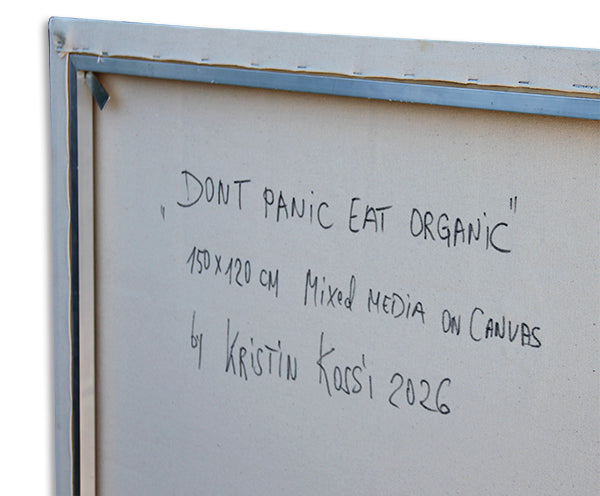 „DONT PANIC EAT ORGANIC"
150x120 CM Mixed MEDIA ON CANVAS
by KRISTIN KOSS'I 2026